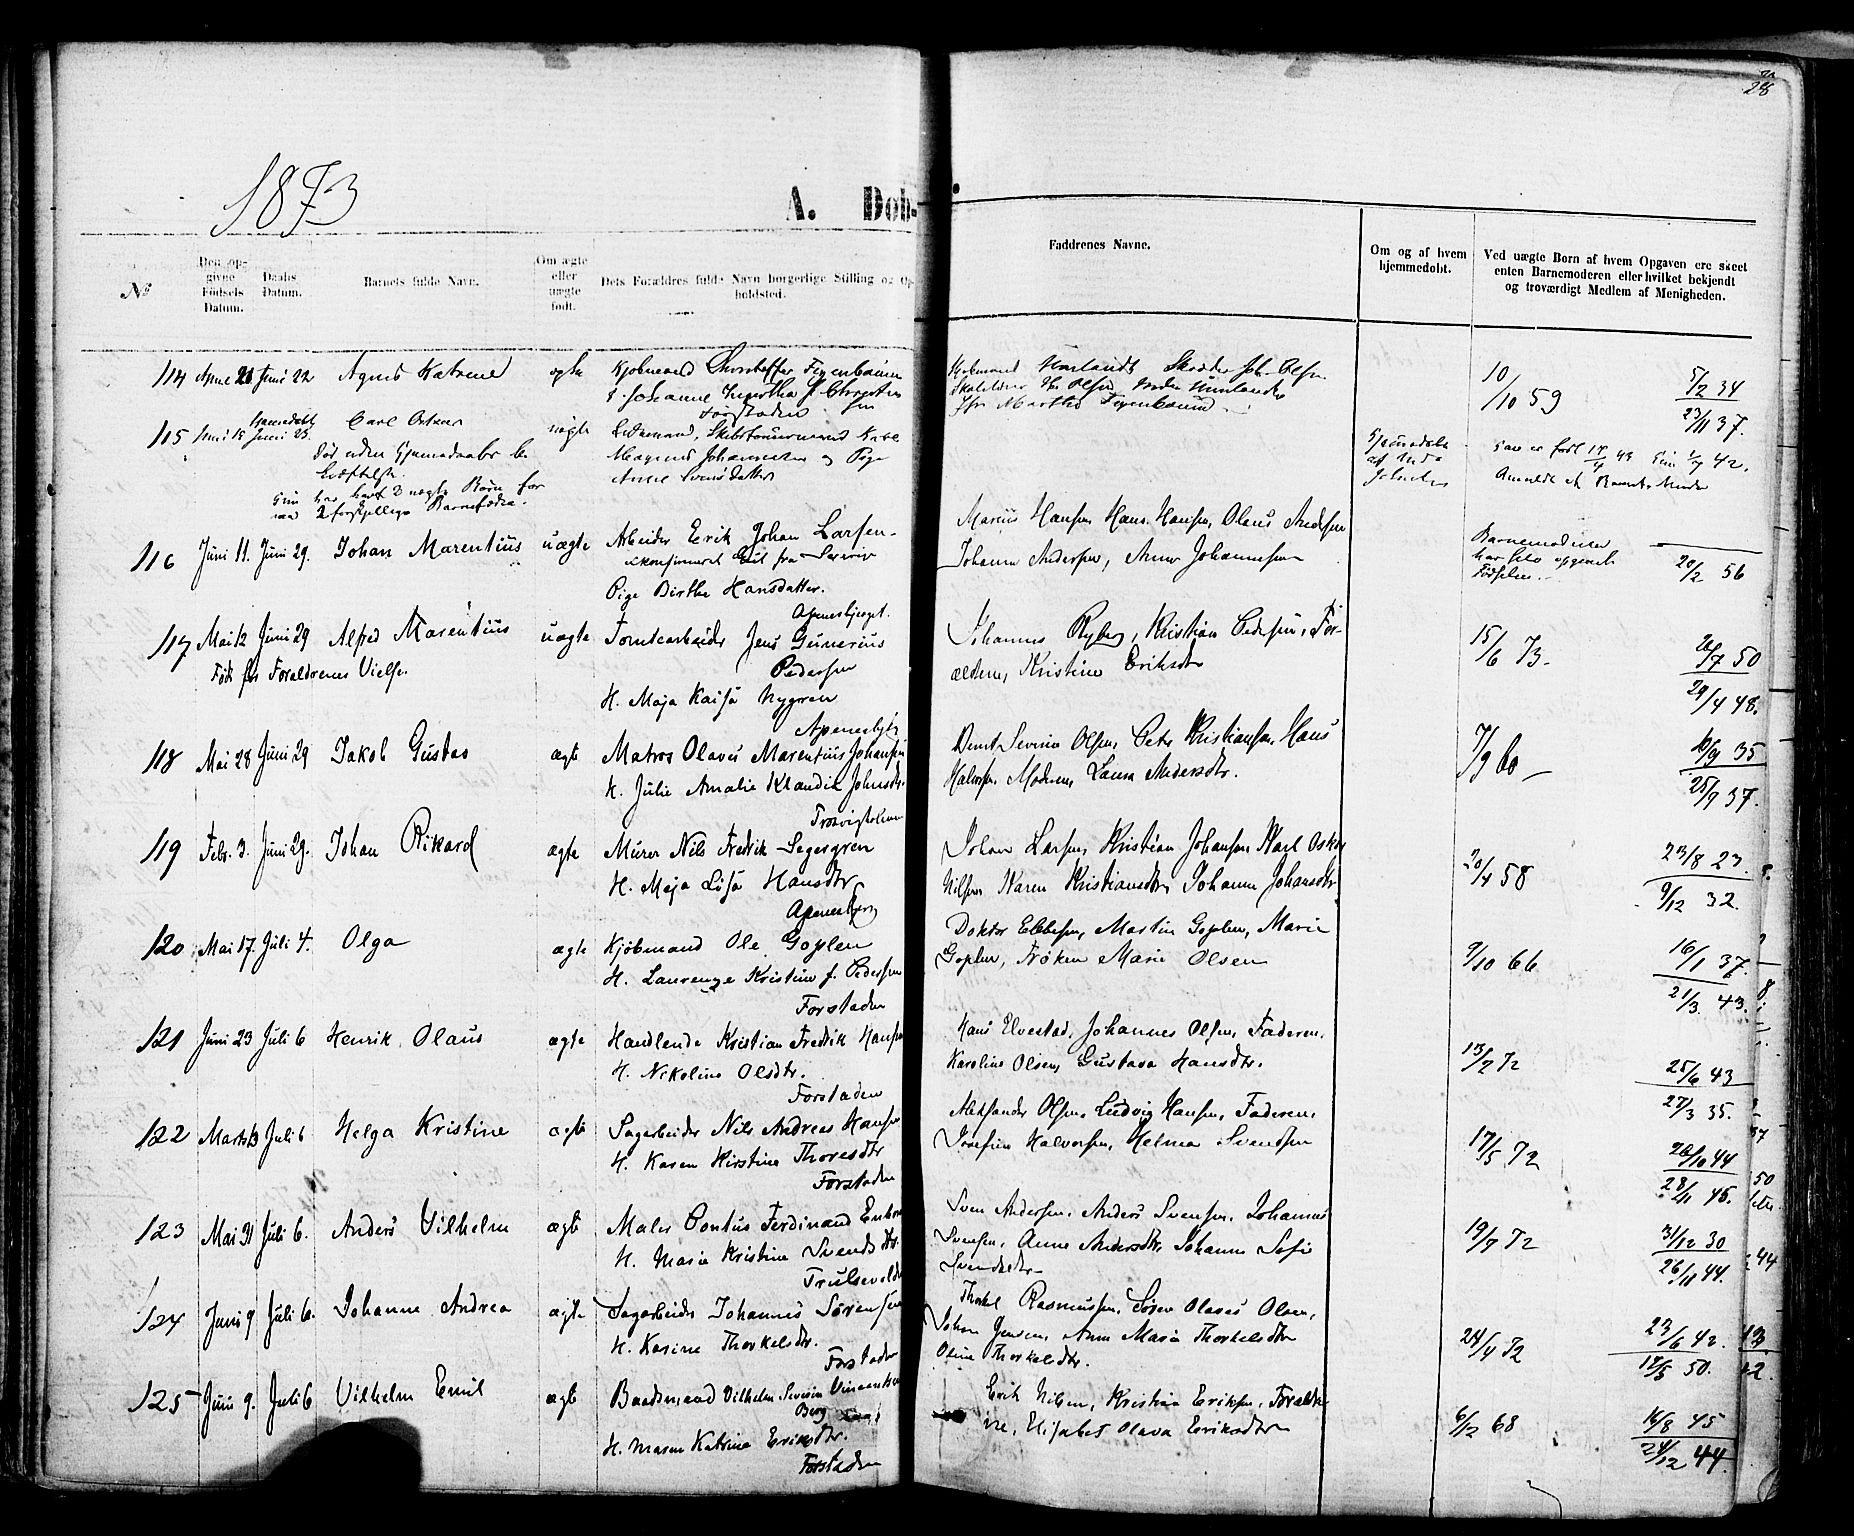 28
1873
A. Døb-
№
Den op-
givne
Fødsels
Datum.
Daabs
Datum.
Barnets fulde Navn.
Om ægte
eller
uægte
født.
Dets Forældres fulde Navn borgerlige Stilling og Op-
holdsted.
Faddrenes Navne.
Om og af hvem
hjemmedøbt.
Ved uægte Børn af hvem Opgaven ere skeet
enten Barnemoderen eller hvilket bekjendt
og troværdigt Medlem af Menigheden.
114 Juni 22 Agnes Katrine ægte Kjøbmand
Johanne
Forstaden
10/10 59
5/2 34
23/11 37.
115 Juni 18 Juni 23. Carl Oskar uægte
Død uden Hjemmedaabs be-
kræftelse.
Magnus Johannesen og Pige
Anne Svensdatter
Hun har havt 2 uægte Børn før
2 forskjellige Barnefædre.
116 Juni 11. Juni 29. Johan Marentius uægte Arbeider Erik Johan Larsen
ukonfirmeret Gut fra
Pige Birthe Hansdatter.
Apenesbjerget.
Marius Hansen, Hans Hansen, Olaus Andersen
Johanne Andersen, Anne Johannesen
Barnemoderen
har selv opgivet
Fødselen.
20/2 56
117 Mai 12 Juni 29 Alfred Marentius uægte Tomtearbeider Jens Gunerius
Pedersen
Født før Forældrenes Vielse.
H. Maja Kaisa Nygren
Apenesbjg
Johannes Ryberg, Kristian Pedersen, For-
ældrene, Kristine Eriksdtr
15/6 73
26/7 50
29/4 48.
118 Mai 28 Juni 29 Jakob Gustav ægte Matros Olaves Marentius Johansen
H. Julie Amalie Klaudia Johnsdtr.
Trosvigholmen
Bernt Severin Olsen, Peter Kristiansen, Hans
Halvorsen, Moderen, Laura Andersdtr.
7/9 60
10/9 35
25/9 37.
119 Febr. 3. Juni 29. Johan Rikard ægte Murer Nils Fredrik Segergren
H. Maja Lisa Hansdtr.
Apenesbjerg
Johan Larsen, Kristian Johansen, Karl Oskar
Nilsen, Karen Kristiansdtr, Johanne Johansdtr
20/4 58
23/8 23.
9/12 32.
120 Mai 17. Juli 4. Olga ægte Kjøbmand Ole Goplen
H. Laurenze Kristine f. Pedersen
Forstaden
Doktor Ebbesen, Martin Goplen, Marie
Goplen, Frøken Marie Olsen
9/10 66
16/1 37.
21/3. 43.
121 Juni 23 Juli 6 Henrik Olaus ægte Handlende Kristian Fredrik Hansen
H. Nikoline Olsdtr.
Forstaden
Hans Elvestad, Johannes Olsen, Faderen,
Karoline Olsen, Gustava Hansdtr.
13/2 72
25/6 43
27/3 35.
122 Marts 13 Juli 6 Helga Kristine ægte Sagarbeider Nils Andreas Hansen
H. Karen Kirstine Thoresdtr
Forstaden
Alexander Olsen, Ludvig Hansen, Faderen,
Josefine Halvorsen, Helma Svendsen
17/5 72
26/10 44
28/11 45.
123 Mai 31 Juli 6. Anders Vilhelm ægte Maler Pontus Ferdinand
H. Marie Kristine Svendsdtr.
Sven Andersen, Anders Svensen, Johannes
Svensen, Anne Andersdtr, Johanne Sofie
Svendsdtr
19/7 72
31/12 30
26/11 44.
124 Juni 9 Juli 6. Johanne Andrea ægte Sagarbeider Johannes Sørensen
H. Karine Thorkelsdtr.
Forstaden
Thorkel Rasmussen, Søren Olaves Olsen,
Johan Jensen, Anne Marie Thorkelsdtr
Oline Thorkelsdtr.
24/4 72
23/6 42.
17/5 50.
125 Juni 9. Juli 6 Vilhelm Emil ægte Baadsmand Vilhelm Severin
Berg
H. Maren Katrine Eriksdtr.
Forstaden
Erik Nilsen, Kristian Eriksen, Foræld-
rene, Elisabet Olava Eriksdtr
6/12 68
16/8 45
24/12 44.